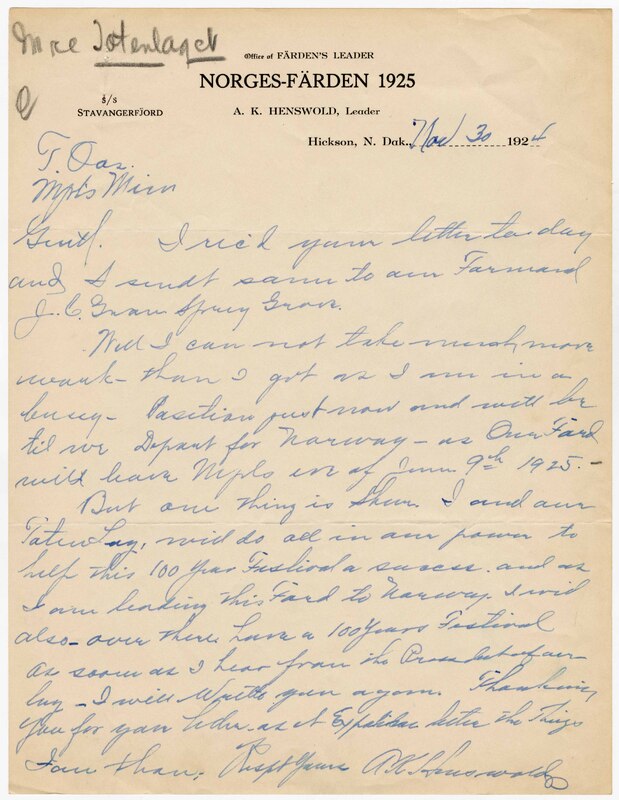 Totenlaget
Office of FÄRDEN'S LEADER
NORGES-FÄRDEN 1925
S/S
STAVANGERFJORD
A. K. HENSWOLD, Leader
Hickson, N. Dak., Nov 30 1924
T. Oas.
Mpls Minn
Gentl. I rec'd your letter to day
and I sendt same to our Formand
J. C. Spring Grove.
Well I can not take mush more
work - than I got as I am in a
busey - Position just now and will be
til we Depart for Norway - as Our Färd
will leave Mpls eve of June 9th 1925. -
But one thing is Shur. I and our
Toten Lag, will do all in our power to
help this 100 Year Festival a sucess. and as
I am leading this Färd to Norway. I will
also - over there have a 100 Years Festival
as soon as I hear from the President of our
lag - I will Write you again. Thanking
you for your letter. as it better the Things
I am than. Respt Yours A. K. Henswold